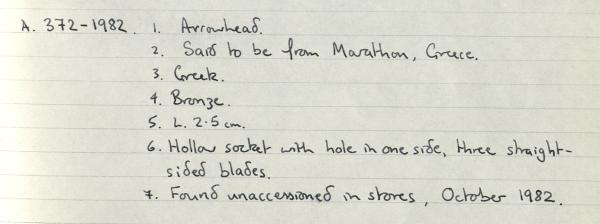 A. 372-1982. 1. Arrowhead.
2. Said to be from Marathon, Greece.
3. Greek.
4. Bronze.
5. L. 2.5 cm.
6. Hollow socket with hole in one side, three straight-
sided blades.
7. Found unaccessioned in stores, October 1982.